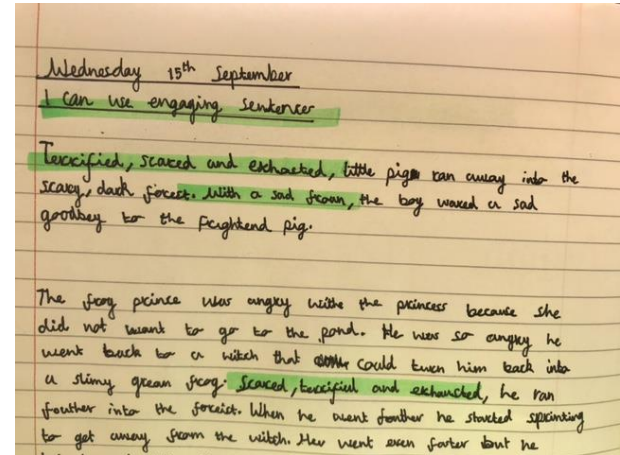 Wednesday 15th September
I can use engaging sentences
Terrified, scared and exhausted, little pig ran away into the
scary, dark forest. With a sad frown, the boy waved a sad
goodbey to the frightend pig.
The frog prince was angry withe the princess because she
did not want to go to the pond. He was so angry he
went back to a witch that could turn him back into
a slimy grean frog. Scared, terrified and exhausted, he ran
fouther into the foreist. When he went fouther he started sprinting
to get away from the witch. Her went even farter but he